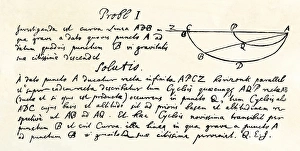 Probl I
Investiganda est curva Linea ADB in
qua grave a dato quovis puncto A ad
datum quodvis punctum B vi gravitatis
suæ citissime descendet
Solutio.
A dato puncto A ducatur recta infinita APCZ horizonti parallela
et super eadem recta describatur tum Cyclois quæcunque AQP rectæ AB
(ductæ et si opus est productæ) occurrens in puncto Q, tum Cyclois alia
ADC cujus basis et altitudo sit ad prioris basem et altitudinem respective
ut AB ad AQ. Et hæc Cyclois novissima transibit per
punctum B et erit Curva illa linea in qua grave a puncto A
ad punctum B vi gravitatis suæ citissime perveniet. Q.E.J.
Z C P A
Q
B
D